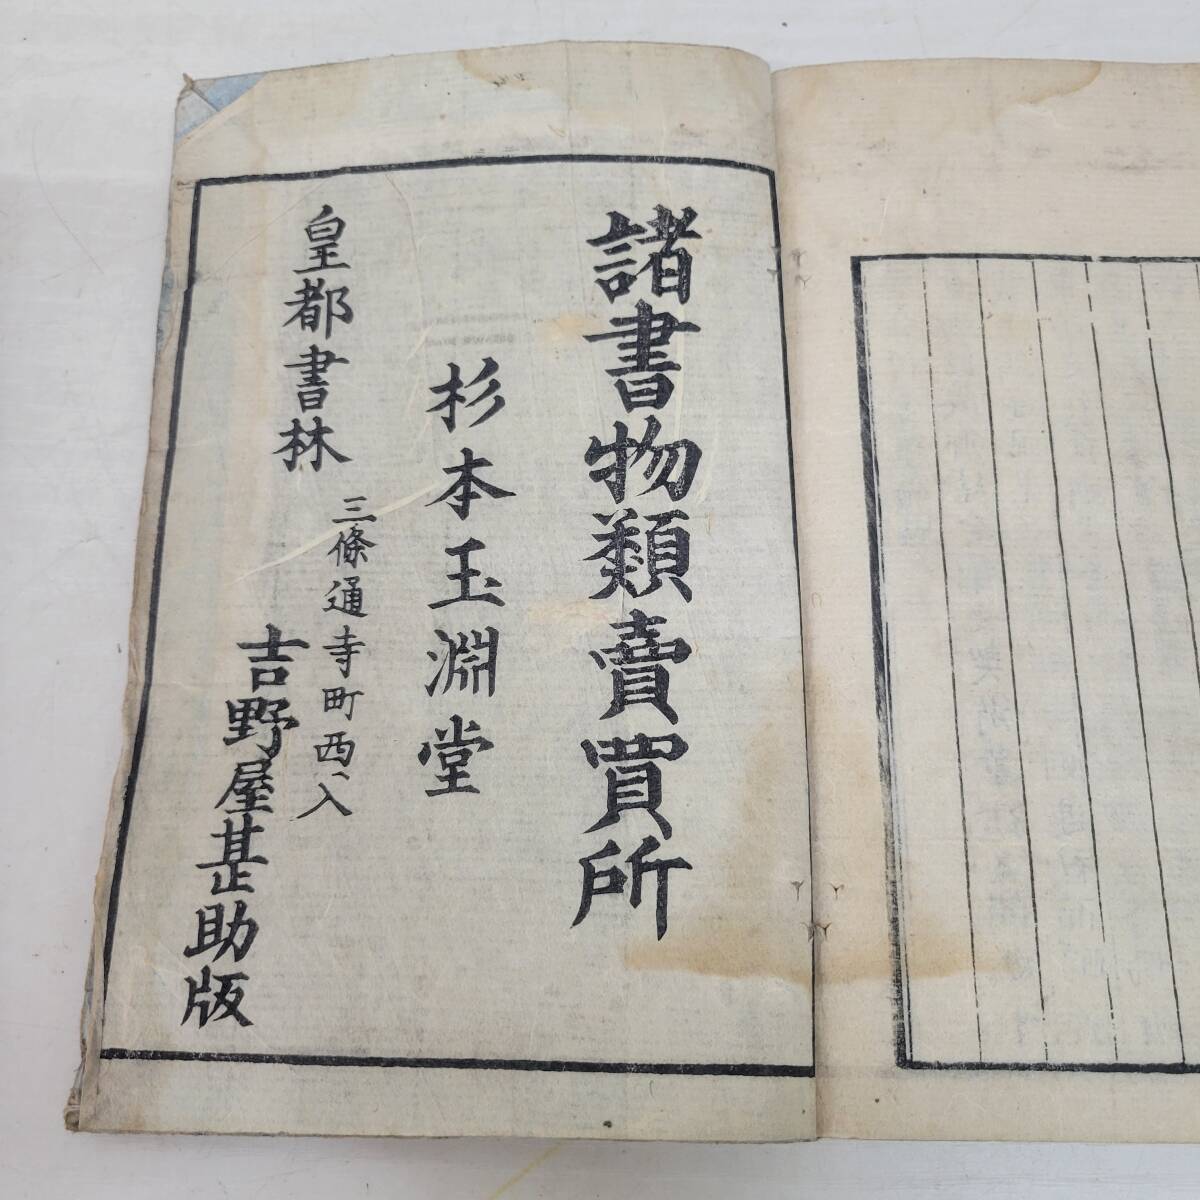 諸書物類賣買所
杉本玉淵堂
皇都書林
三條通寺町西ヘ入
吉野屋甚助版